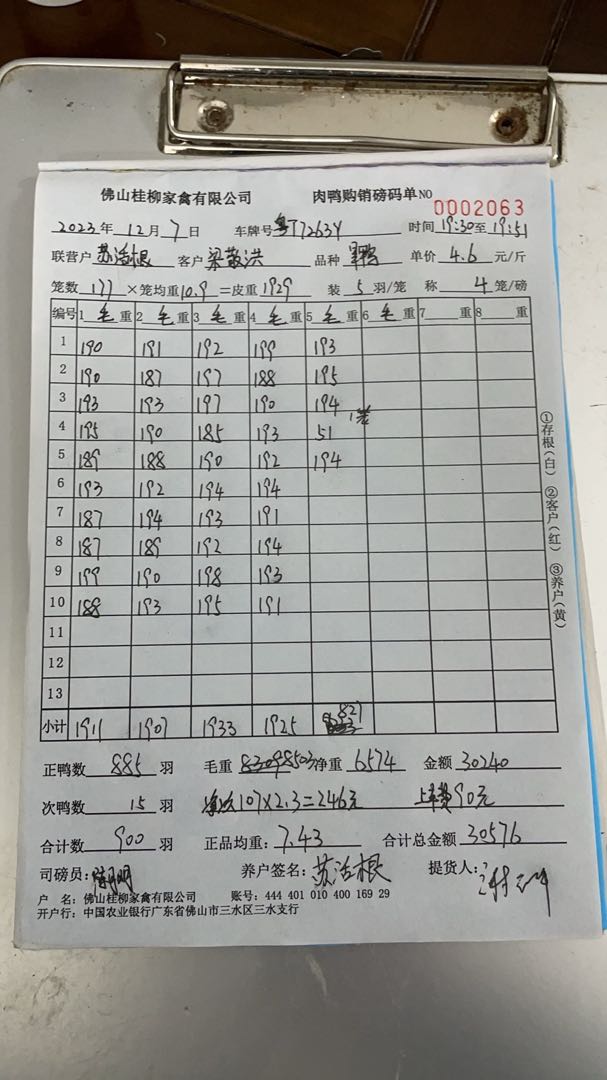 佛山桂柳家禽有限公司 肉鸭购销磅码单 NO 0002063
2023年 12月 7日 车牌号 粤T72634 时间 19:30至 19:51
联营户 苏活根 客户 梁敬洪 品种 单价 4.6 元/斤
笼数 177 ×笼均重 10.9 =皮重 1929 装 5 羽/笼 称 4 笼/磅
编号 1 毛 重 2 毛 重 3 毛 重 4 毛 重 5 毛 重 6 毛 重 7 重 8 重
1 190 191 192 199 193
2 190 187 197 188 195
3 193 193 197 190 194
4 195 190 185 193 51
5 189 188 190 192 194
6 193 192 194 194
7 187 194 193 191
8 187 189 192 194
9 199 190 198 193
10 188 193 195 191
11
12
13
小计 1911 1907 1933 1925 827
正鸭数 885 羽 毛重 8503 净重 6574 金额 30240
次鸭数 15 羽 107×2.3=246元 90元
合计数 900 羽 正品均重: 7.43 合计总金额 30576
司磅员: 养户签名: 苏活根 提货人:
户 名: 佛山桂柳家禽有限公司 账号: 444 401 010 400 169 29
开户行: 中国农业银行广东省佛山市三水区三水支行
①存根(白) ②客户(红) ③养户(黄)